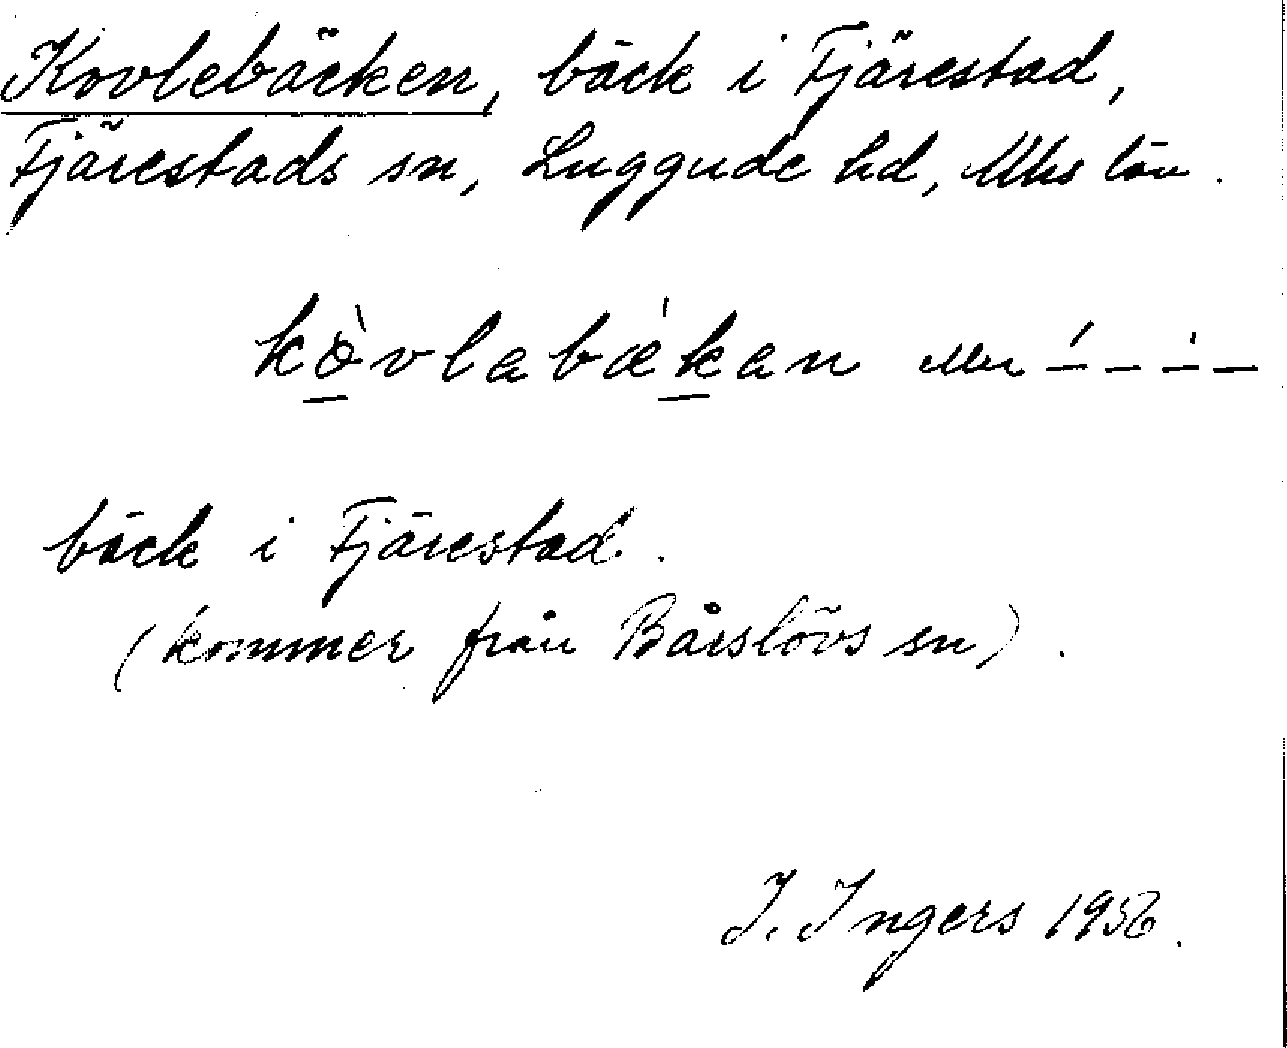 Kovlebäcken, bäck i Fjärestad,
Fjärestads sn, Luggude hd, Mhs län.
kòvlabækan eller ´ – – ` –
bäck i Fjärestad.
(kommer från Bårslövs sn).
I. Ingers 1956.